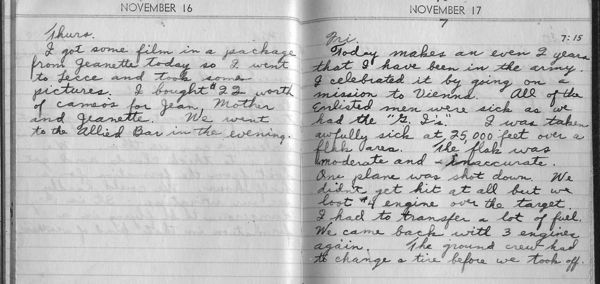 NOVEMBER 16
Thurs.
I got some film in a package
from Jeanette today so I went
to Lecce and took some
pictures. I bought $22 worth
of cameos for Jean, Mother
and Jeanette. We went
to the Allied Bar in the evening.
NOVEMBER 17
7
Fri. 7:15
Today makes an even 2 years
that I have been in the army.
I celebrated it by going on a
mission to Vienna. All of the
Enlisted men were sick as we
had the "G. I's". I was taken
awfully sick at 25,000 feet over a
flak area. The flak was
moderate and inaccurate.
One plane was shot down. We
didn't get hit at all but we
loot #4 engine over the target.
I had to transfer a lot of fuel.
We came back with 3 engines
again. The ground crew had
to change a tire before we took off.